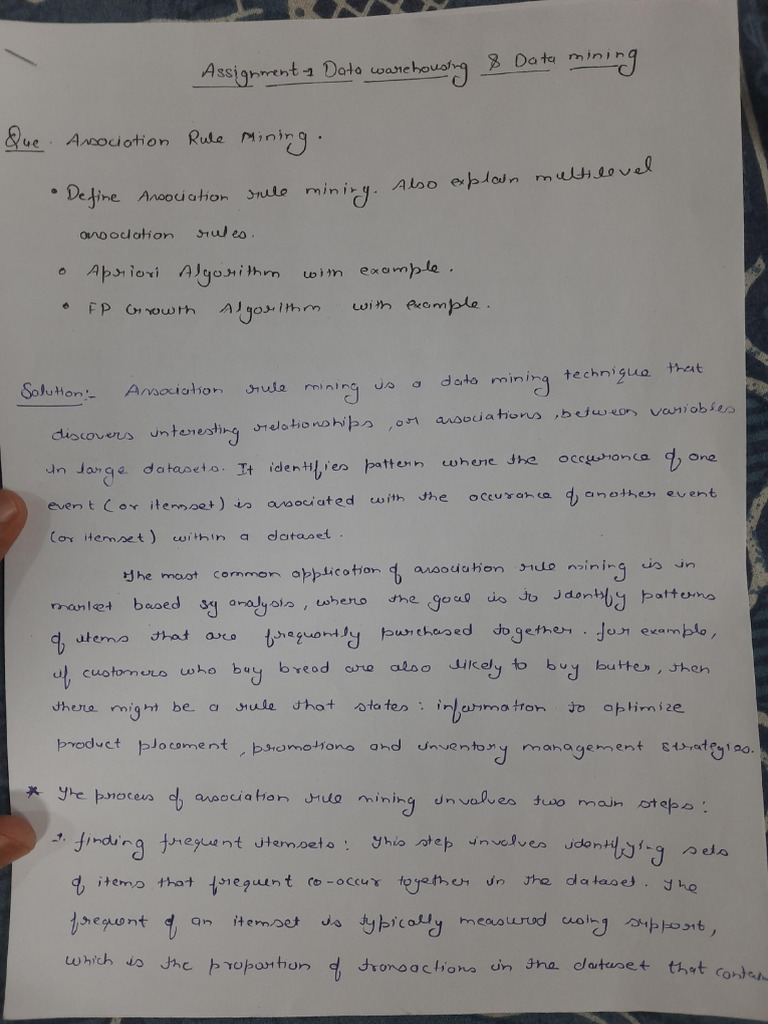 Assignment-1 Data warehousing & Data mining
Que. Association Rule Mining.
• Define Association rule mining. Also explain multilevel
association rules.
• Apriori Algorithm with example.
• FP Growth Algorithm with example.
Solution:- Association rule mining is a data mining technique that
discovers interesting relationships, or associations, between variables
in large datasets. It identifies pattern where the occurance of one
event (or itemset) is associated with the occurance of another event
(or itemset) within a dataset.
The most common application of association rule mining is in
market based sy analysis, where the goal is to identify patterns
of items that are frequently purchased together. for example,
if customers who buy bread are also likely to buy butter, then
there might be a rule that states: information to optimize
product placement, promotions and inventory management strategies.
* The process of association rule mining involves two main steps:
1. finding frequent itemsets: This step involves identifying sets
of items that frequent co-occur together in the dataset. The
frequent of an itemset is typically measured using support,
which is the proportion of transactions in the dataset that contain